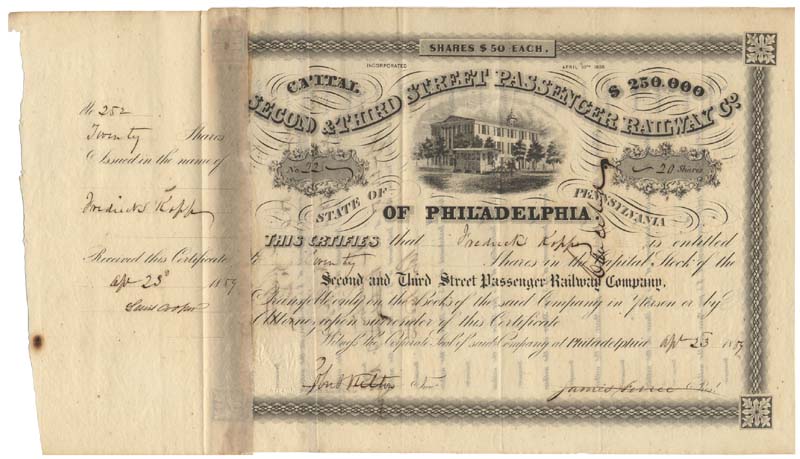 No 252
Twenty Shares
Issued in the name of
Fredrick Kopp
Received this Certificate
Apr 23d 1859
SHARES $50 EACH.
INCORPORATED APRIL 10TH 1858
CAPITAL $250.000
SECOND & THIRD STREET PASSENGER RAILWAY CO.
No. 252
20 Shares
STATE OF PENNSYLVANIA
OF PHILADELPHIA.
THIS CERTIFIES that Fredrick Kopp is entitled
to Twenty Shares in the Capital Stock of the
Second and Third Street Passenger Railway Company.
Transferable only on the Books of the said Company in Person or by
Attorney upon surrender of this Certificate
Witness the Corporate Seal of said Company at Philadelphia Apr 23 1859